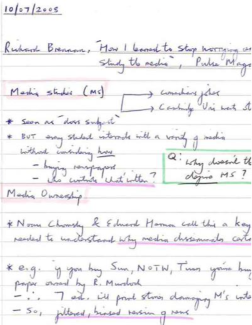 10/07/2005
Richard Brennan, "How I learned to stop worrying and
study the media", Pulse M
Media studies (MS)
* Seen as "doss subject"
* BUT every student interacts with a variety of media
without considering how
- buying newspapers
- who controls what's written?
Q: why doesn't the
MS?
Media Ownership
* Noam Chomsky & Edward Herman call this a key
needed to understand why media disseminate certain
* e.g. if you buy Sun, NOTW, Times you're buying
paper owned by R. Murdoch
- will print stories damaging M's
- So, filtered, biased version of news